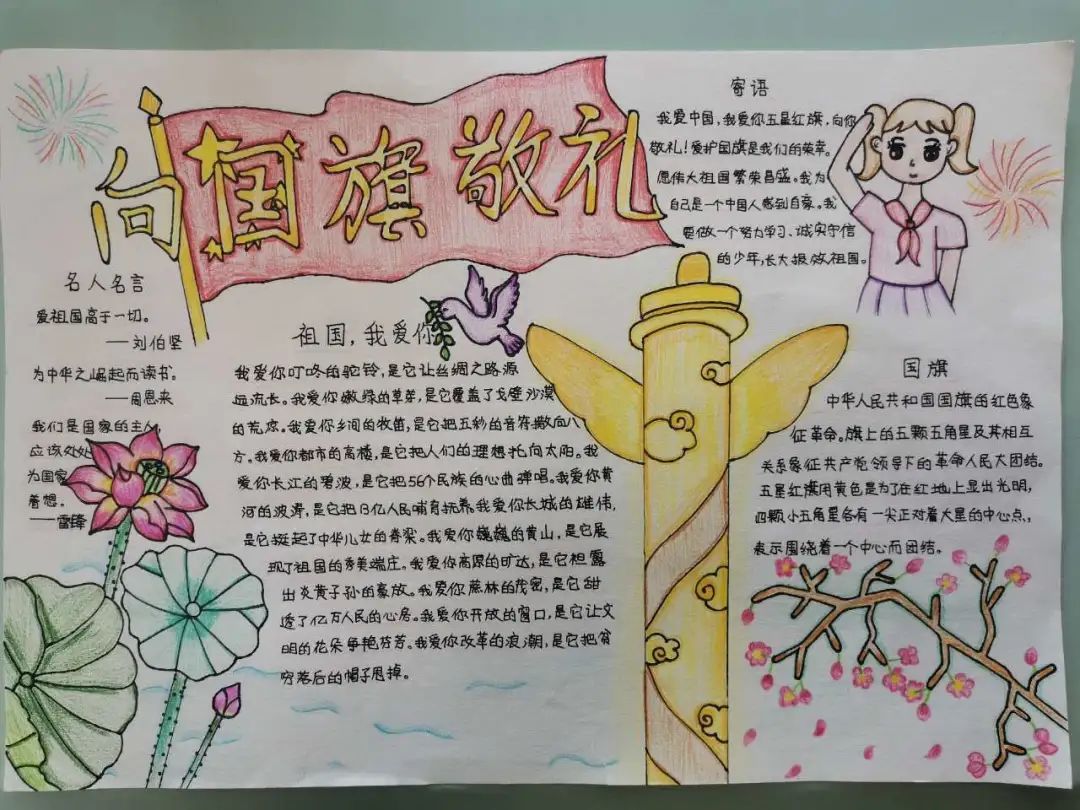 向国旗敬礼
寄语
我爱中国，我爱你五星红旗，向你
敬礼！爱护国旗是我们的荣幸。
愿伟大祖国繁荣昌盛。我为
自己是一个中国人感到自豪。我
要做一个努力学习、诚实守信
的少年，长大报效祖国。
名人名言
爱祖国高于一切。
——刘伯坚
为中华之崛起而读书。
——周恩来
我们是国家的主人，
应该处处
为国家
着想。
——雷锋
祖国，我爱你
我爱你叮咚的驼铃，是它让丝绸之路源
远流长。我爱你嫩绿的草苐，是它覆盖了戈壁沙漠
的荒凉。我爱你乡间的牧笛，是它把五彩的音符撒向八
方。我爱你都市的高楼，是它把人们的理想托向太阳。我
爱你长江的碧波，是它把56个民族的心曲弹唱。我爱你黄
河的波涛，是它把13亿人民哺育抚养。我爱你长城的雄伟，
是它挺起了中华儿女的脊梁。我爱你巍巍的黄山，是它展
现了祖国的秀美端庄。我爱你高原的旷达，是它袒露
出炎黄子孙的豪放。我爱你蔗林的茂密，是它甜
透了亿万人民的心房。我爱你开放的窗口，是它让文
明的花朵争艳芬芳。我爱你改革的浪潮，是它把贫
穷落后的帽子甩掉。
国旗
中华人民共和国国旗的红色象
征革命。旗上的五颗五角星及其相互
关系象征共产党领导下的革命人民大团结。
五星红旗用黄色是为了在红地上显出光明，
四颗小五角星各有一尖正对着大星的中心点，
表示围绕着一个中心而团结。